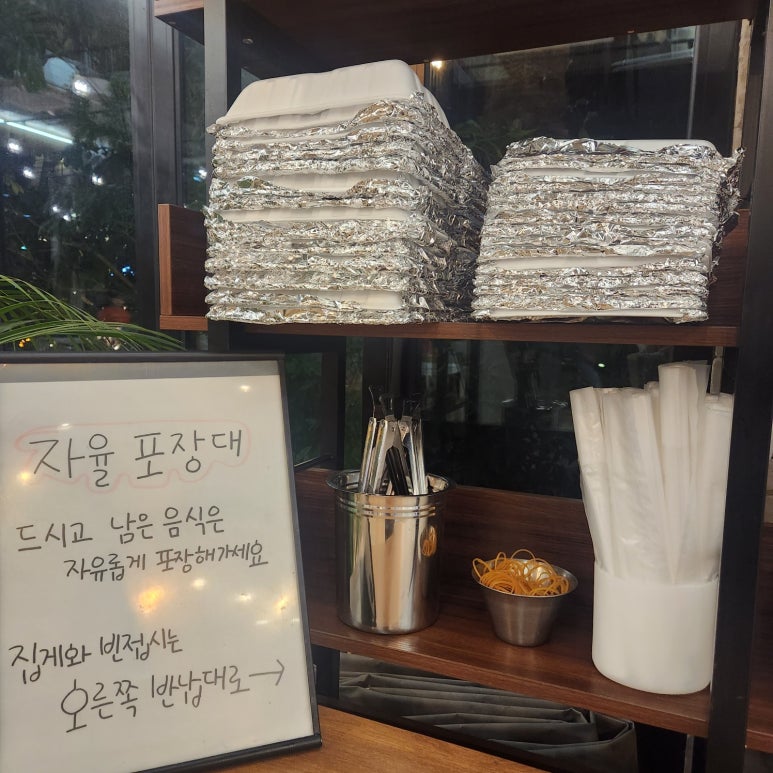 자율 포장대
드시고 남은 음식은
자유롭게 포장해가세요
집게와 빈접시는
오른쪽 반납대로→